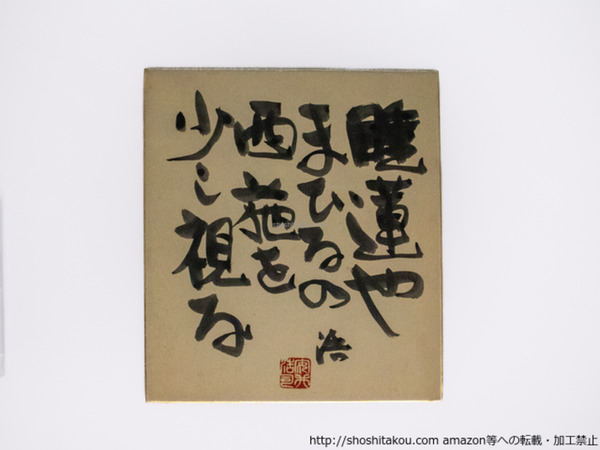 睡蓮や
まひるの
西施を
少し視る
浩
http://shoshitakou.com amazon等への転載・加工禁止